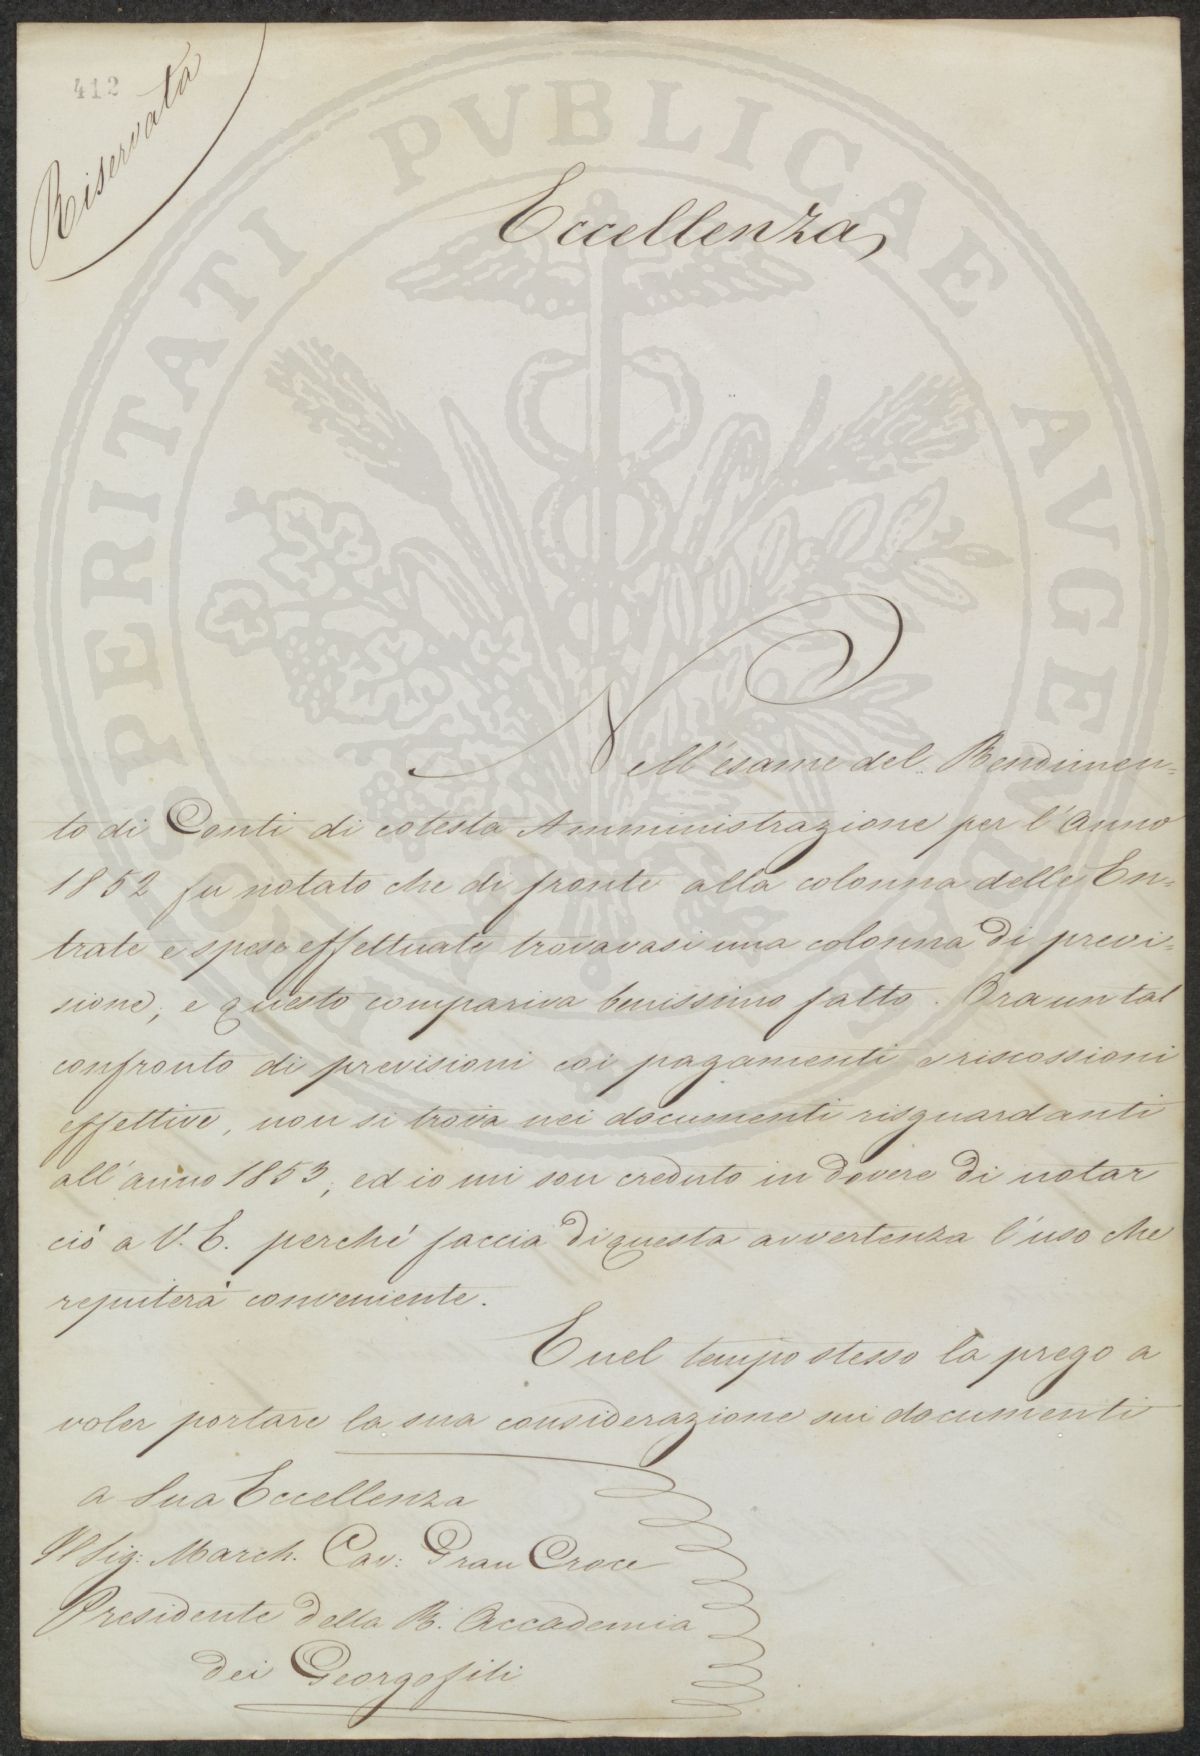 412
Riservata
Eccellenza
Nell'esame del Rendimen=
to di Conti di cotesta Amministrazione per l'Anno
1852 fu notato che di fronte alla colonna delle En=
trate e spese effettuate trovavasi una colonna di previ=
sione; e questo compariva benissimo fatto. Ora un tal
confronto di previsioni coi pagamenti e riscossioni
effettive, non si trova nei documenti risguardanti
all'anno 1853, ed io mi son creduto in dovere di notar
ciò a V. E. perchè faccia di questa avvertenza l'uso che
reputerà conveniente.
E nel tempo stesso la prego a
voler portare la sua considerazione sui documenti
a Sua Eccellenza
Il Sig: March. Cav: Gran Croce
Presidente della R. Accademia
dei Georgofili
PROSPERITATI PVBLICAE AVGENDAE